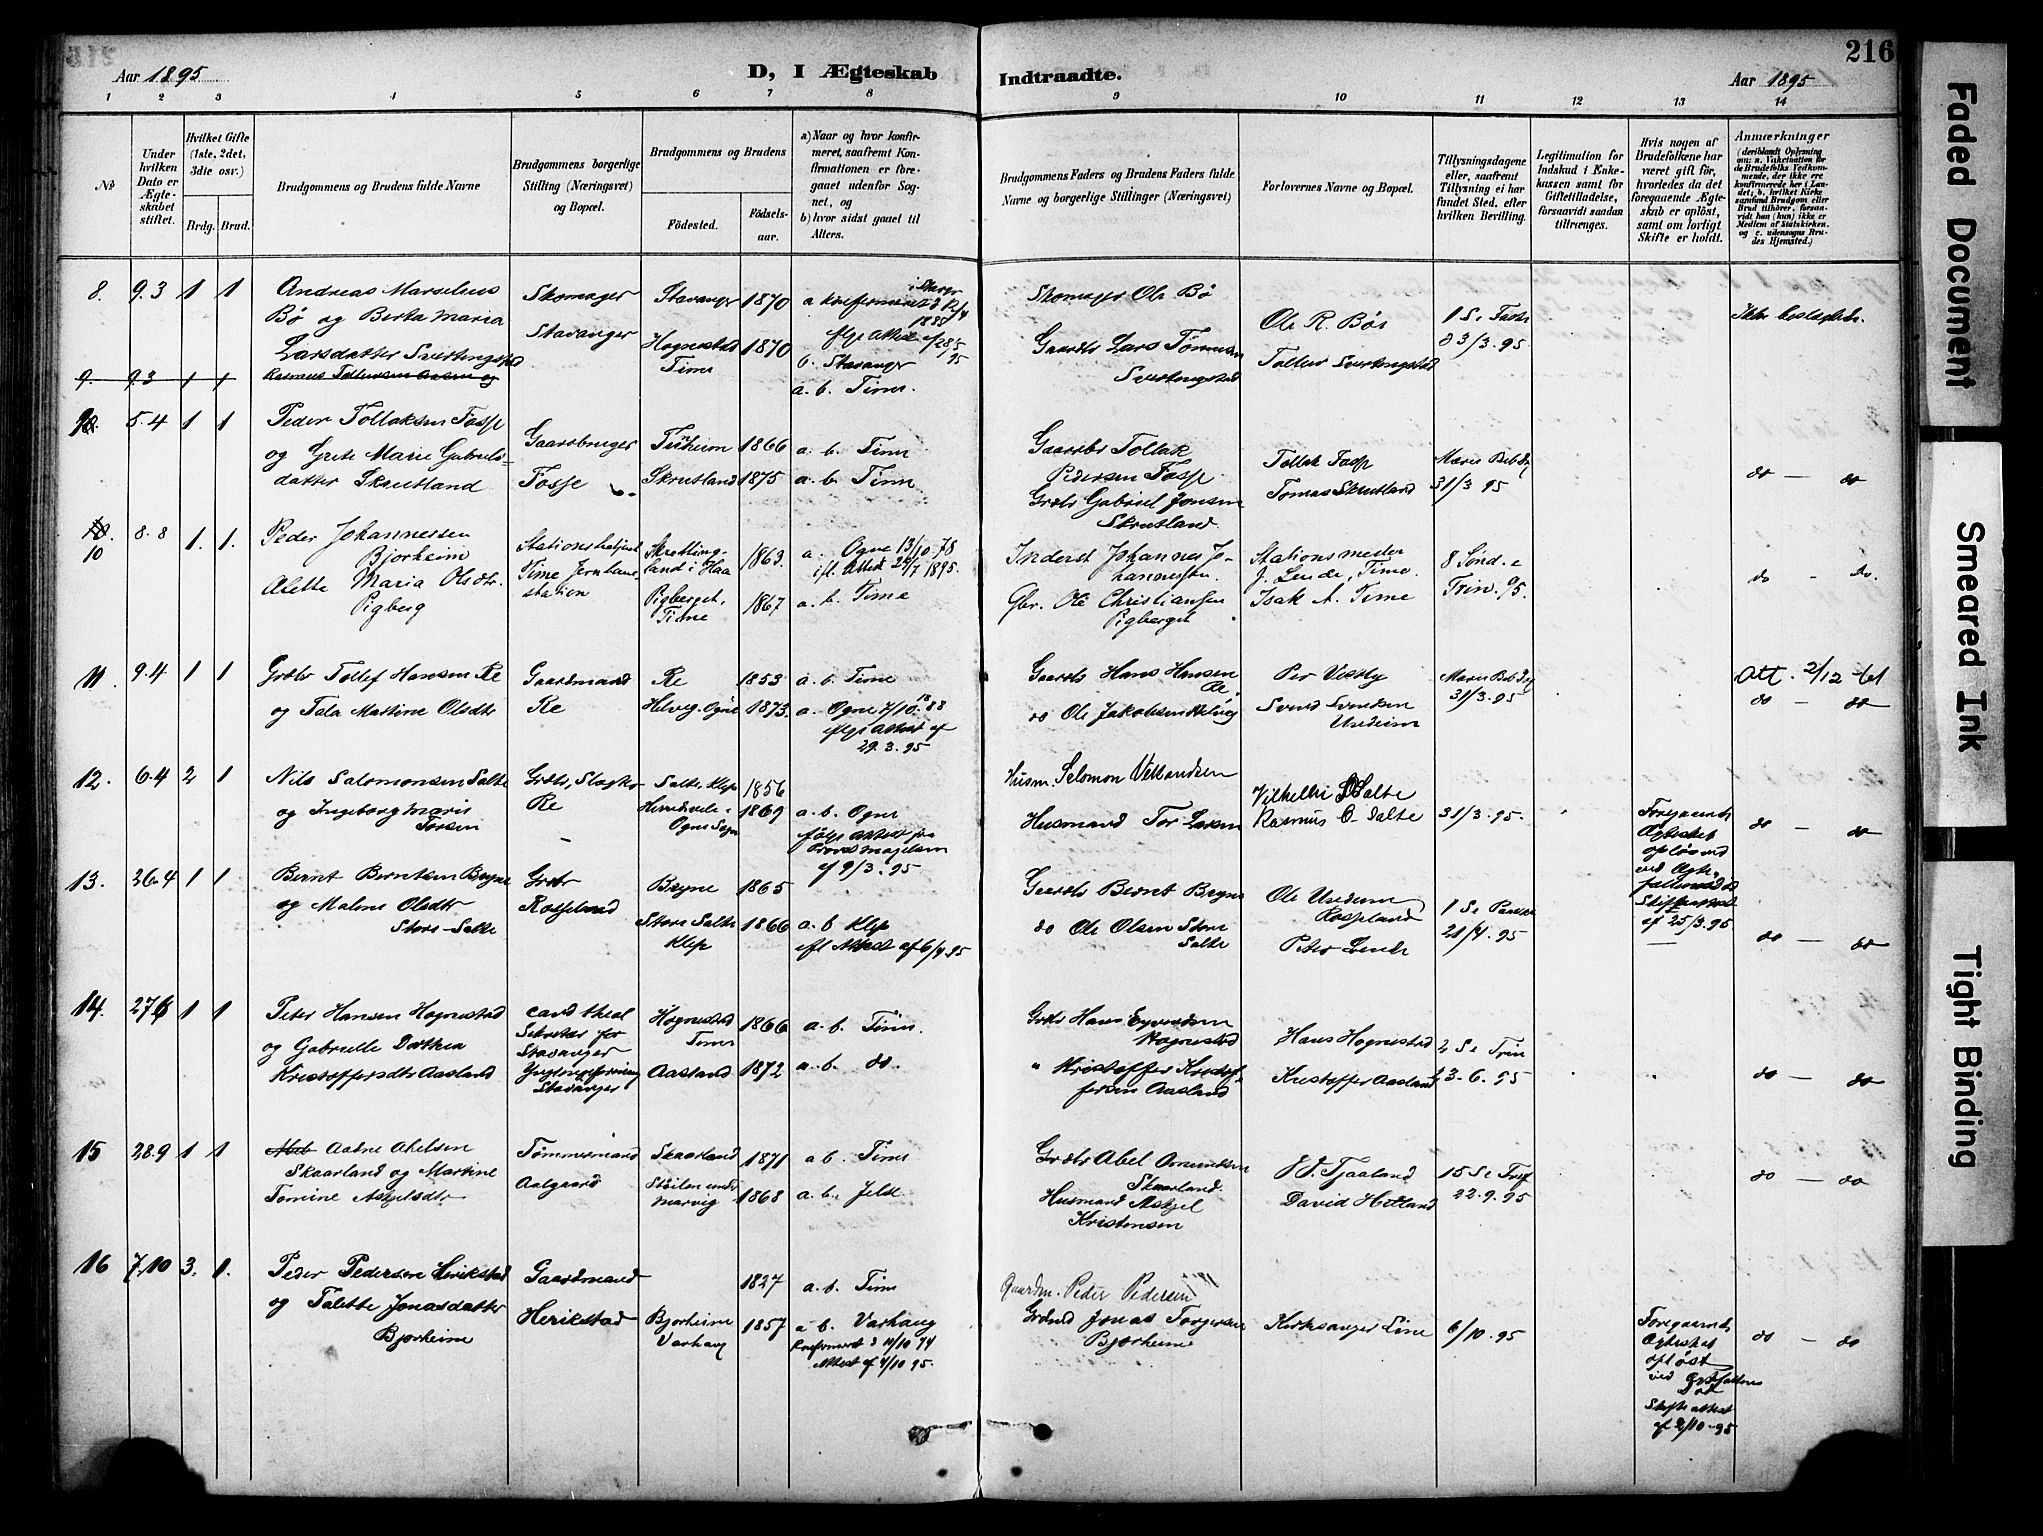 216
Aar 1895
D, I Ægteskab
Indtraadte.
Aar 1895
1 2 3 4 5 6 7 8 9 10 11 12 13 14
No
Under hvilken Dato er Ægteskabet stiftet.
Hvilket Gifte (1ste, 2det, 3die osv.)
Brdg. Brud.
Brudgommens og Brudens fulde Navne
Brudgommens borgerlige Stilling (Næringsvei) og Bopæl.
Brudgommens og Brudens
Födested.
Födsels-aar.
a) Naar og hvor konfirmeret, saafremt Konfirmationen er foregaaet udenfor Sognet, og
b) hvor sidst gaaet til Alters.
Brudgommens Faders og Brudens Faders fulde Navne og borgerlige Stillinger (Næringsvei)
Forlovernes Navne og Bopæl.
Tillysningsdagene eller, saafremt Tillysning ei har fundet Sted, efter hvilken Bevilling.
Legitimation for Indskud i Enkekassen samt for Giftetilladelse, forsaavidt saadan tiltrænges.
Hvis nogen af Brudefolkene har været gift før, hvorledes da det foregaaende Ægteskab er opløst, samt om lovligt Skifte er holdt.
Anmærkninger
8. 9.3 1 1
Andreas Marselius
Bö og Berta Maria
Larsdatter Svertingstad
Skomager
Stavanger
Stavanger 1870
Hognestad 1870
Time
b. Stavanger
a. b. Time.
Skomager Ole Bö
Gaardb Lars Tönnesen
Svertingstad
Ole R. Bös
Tollew Svertingstad
3/3.95
Ikke beslegtede.
9. 9.3 1 1
5.4 1 1
Peder Tollaksen Fosse
og Grete Marie Gabriels-
datter Skrutland
Gaardbruger
Fosse
1866
Skrutland 1875
a. b. Time
a. b. Time
Gaardbr Tollak
Pedersen Fosse
Grdbr Gabriel Jonsen
Skrutland
Tollak Fosse
Tomas Skrutland
31/3 95
do — do
10
8.8 1. 1.
Peder Johannessen
Bjorheim
Alette Maria Olsdtr.
Pigberg
Stationsbetjent
Time Jernbane-
station
Skretting-
land i Haa 1863.
Pigberget, 1867
Time
a. Ogne 13/10 78
ifl. Attest 24/7 1895.
a. b. Time
Inderst Johannes Jo-
hannessen.
Gbr. Ole Christiansen
Pigberget
Stationsmester
J. Lende, Time.
Isak A. Time
8 Sönd. e
Trin. 95.
do - do.
11. 9.4 1 1
Grdbr Tollef Hansen Re
og Tala Martine Olsdtr
Gaardmand
Re
Re 1853
Helvig. Ogne 1873.
a. b. Time
a. Ogne 7/10. 88
29.3.95
Gaardb Hans Hansen
Re.
do Ole Jakobsen Helvig
Per Vestly
Svend Svendsen
Undeim
31/3.95
Att. 2/12 bet
do — do
12. 6.4 2 1
Nils Salomonsen Salte
og Ingeborg Marie
Torsen
Re
Salte, Klep 1856
1869
Ogne Sogn
a. b. Ogne
af 9/3.95
Husm. Salomon
Husmand Tor Larsen
Salte
Rasmus O. Salte
31/3.95.
Foregaaende
Ægteskab
af 25/3.95
do — do
13. 26.4 1 1
Bernt Berntsen Bryne
og Malene Olsdtr
Store-Salte
Grdbr
Rosseland
Bryne 1865
Store Salte 1866
Klep
a. b Klep
ifl Attest af 6/4 95
Gaardb Bernt Bryne
do Ole Olsen Store
Salte
Ole Undeim
Rosseland
Peter Lende
21/4.95
do — do
14. 27.6 1 1
Peter Hansen Hognestad
og Gabrielle Dorthea
Kristoffersdtr Aasland
cand theol
Sekretær for
Stavanger
Ynglingeforening
Stavanger
Hognestad 1866
Time
Aasland 1872
a. b. Time.
a. b. do.
Grdbr Hans Eyvendsen
Hognestad
" Kristoffer Kristof-
fersen Aasland
Hans Hognestad
Kristoffer Aasland
2 S e Trin
23.6.95
do — do
15 28.9 1 1
Aadne Abelsen
Skaarland og Martine
Tomine Askjelsdtr
Tømmermand
Aalgaard
Skaarland 1871
Marvig 1868
a b. Time
a. b. Jelse
Grdbr Abel Omundsen
Skaarland.
Husmand Askjel
Kristensen
Tjaaland
David Hetland
15 S e Tref
22.9.95
do — do
16 7.10 3. 1.
Peder Pedersen Herikstad
og Talette Jonasdatter
Bjorheime
Gaardmand
Herikstad
1827
Bjorheime 1857
Varhaug
a. b. Time
a b. Varhaug
Attest af 4/10 95.
Gaardm. Peder Pedersen
Grdmd Jonas Torgersen
Bjorheime
Kirksanger Line
6/10.95
Foregaaende
Ægteskab
opløst
ved
Död
Skifteattest
af 2/10.95
do — do
Faded Document
Smeared Ink
Tight Binding